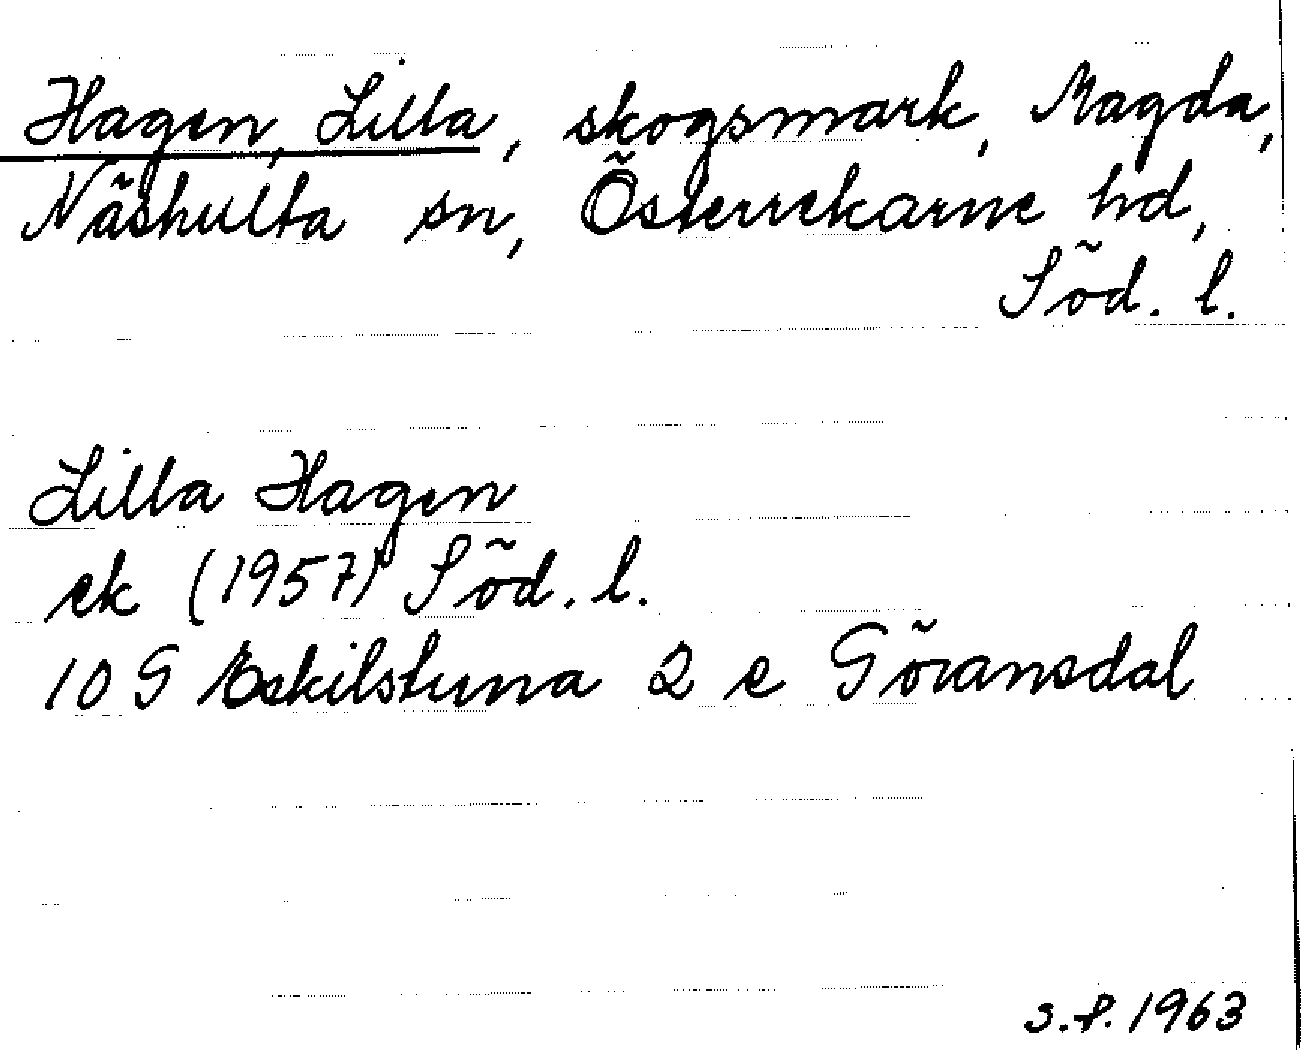 Hagen, Lilla, skogsmark, Magda,
Näshulta sn, Österrekarne hd,
Söd. l.
Lilla Hagen
ek (1957) Söd. l.
10 G Eskilstuna 2 e Göransdal
s.f. 1963